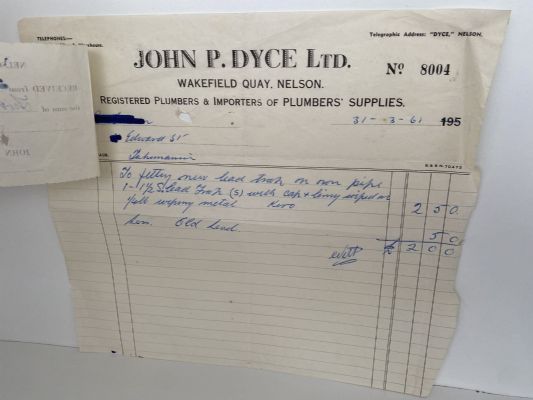 TELEPHONES:—
Telegraphic Address: "DYCE," NELSON.
JOHN P. DYCE LTD.
No 8004
WAKEFIELD QUAY, NELSON.
REGISTERED PLUMBERS & IMPORTERS OF PLUMBERS' SUPPLIES.
31-3-61 195
Edward St
Tahunanui
To fitting new lead trap on iron pipe
1- 1½ S. lead Trap (S) with cap +
wiping metal Kero 2 5 0
Less Old Lead. 5 0
£ 2 0 0
RECEIVED from
the sum of
JOHN